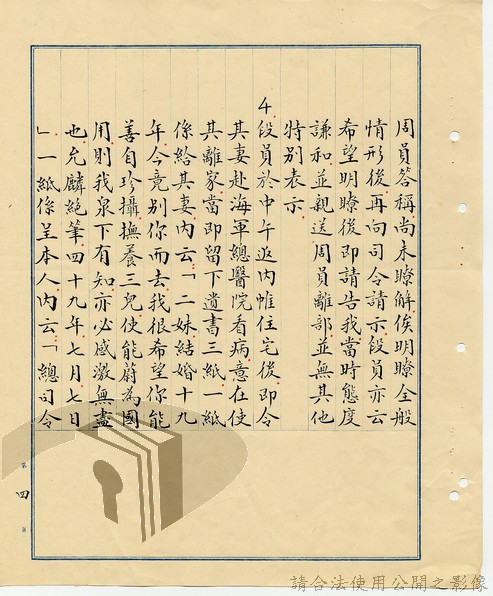 周員答稱尚未瞭解俟明瞭全般
情形後再向司令請示段員亦云
希望明瞭後即請告我當時態度
謙和並親送周員離部並無其他
特別表示
4.段員於中午返內惟住宅後即令
其妻赴海軍總醫院看病意在使
其離家當即留下遺書三紙一紙
係給其妻內云「二妹結婚十九
年今竟別你而去我很希望你能
善自珍攝撫養三兒使能蔚為國
用則我泉下有知亦必感激無盡
也允麟絕筆四十九年七月七日
」一紙係呈本人內云「總司令
第四頁
請合法使用公開之影像